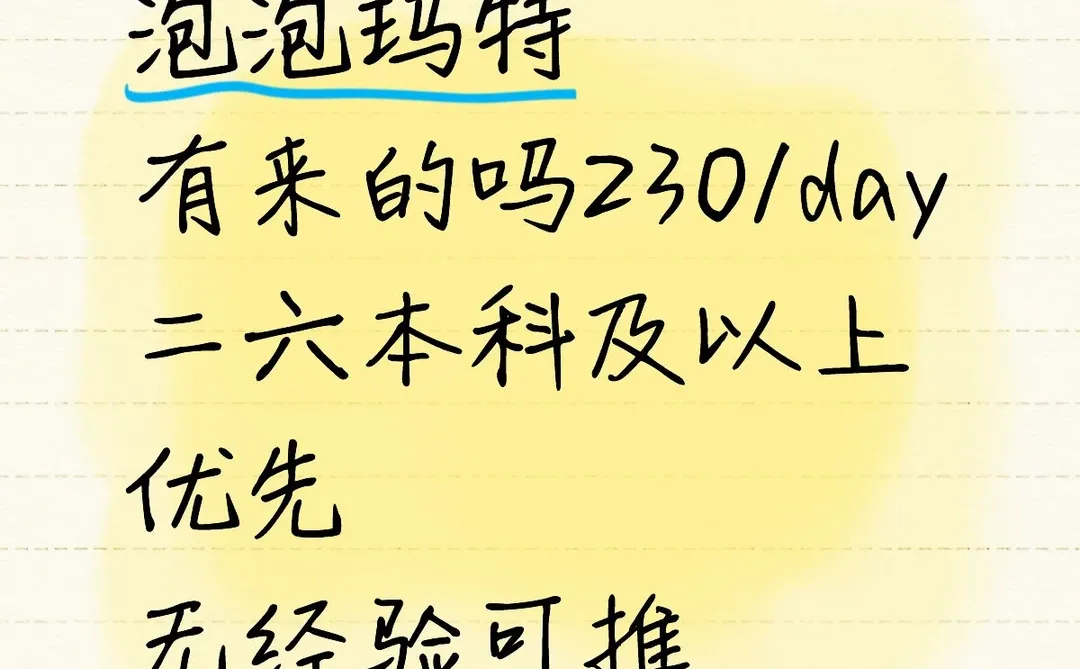 泡泡玛特
有来的吗230/day
二六本科及以上
优先
无经验可推